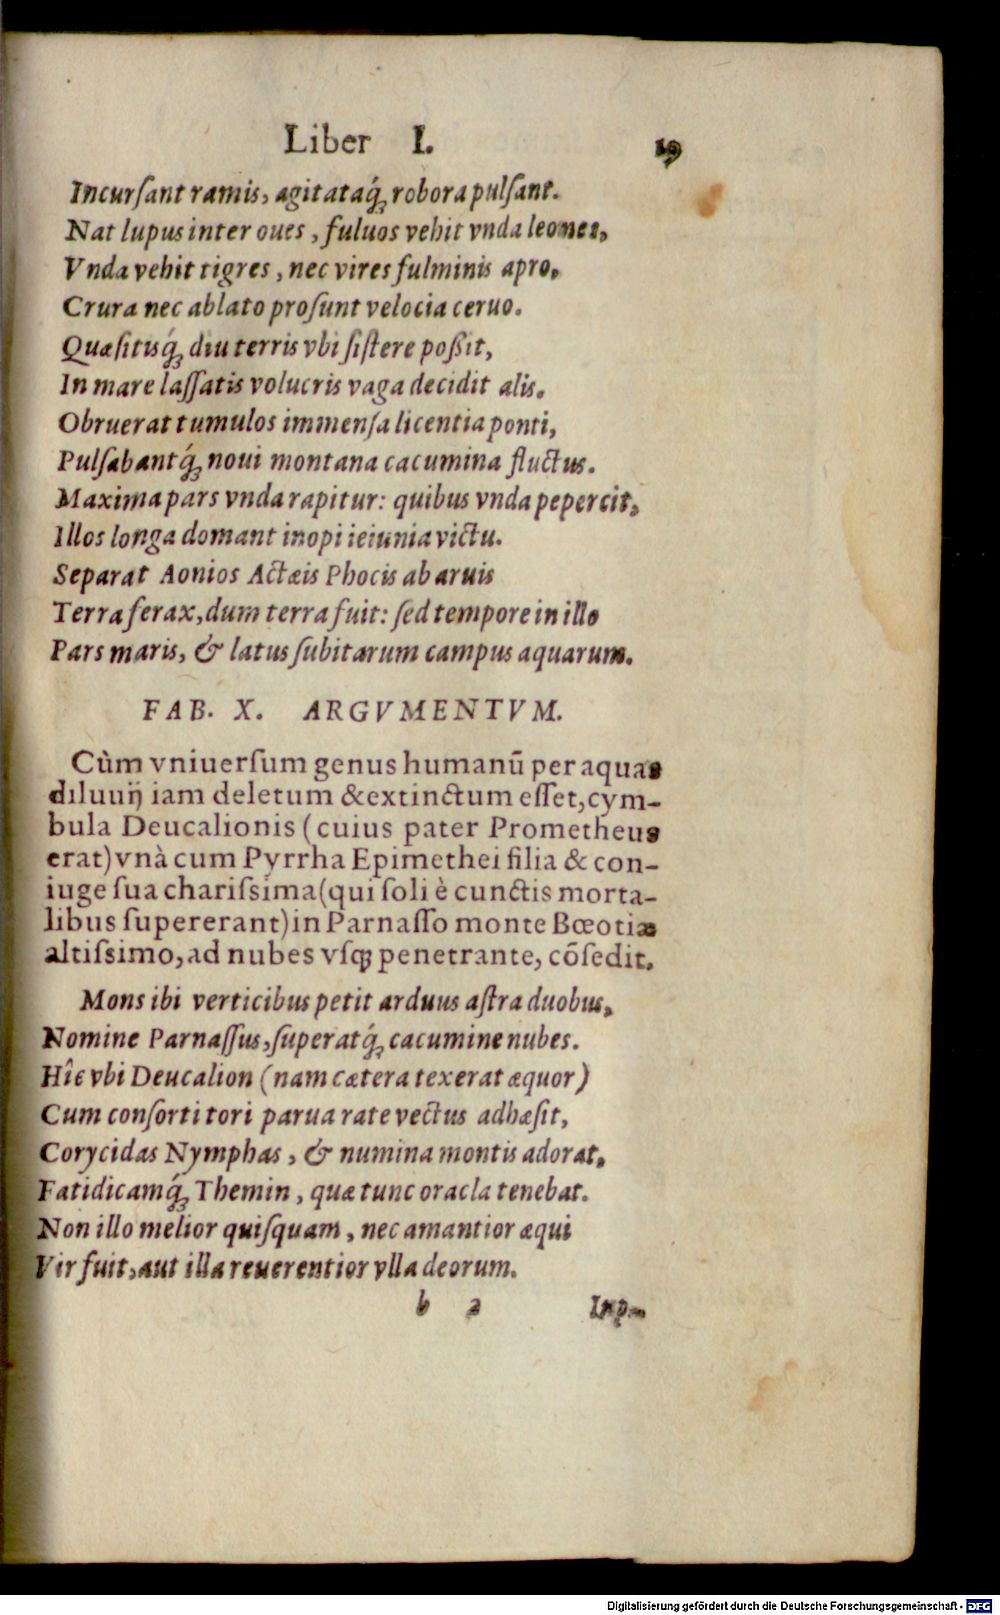 Liber I. 19
Incurſant ramis, agitataq́; robora pulſant.
Nat lupus inter oues, fuluos vehit vnda leones,
Vnda vehit tigres, nec vires fulminis apro,
Crura nec ablato proſunt velocia ceruo.
Quæſitisq́; diu terris vbi ſiſtere poßit,
In mare laſſatis volucris vaga decidit alis.
Obruerat tumulos immenſa licentia ponti,
Pulſabantq́; noui montana cacumina fluctus.
Maxima pars vnda rapitur: quibus vnda pepercit,
Illos longa domant inopi ieiunia victu.
Separat Aonios Actæis Phocis ab aruis
Terra ferax, dum terra fuit: ſed tempore in illo
Pars maris, & latus ſubitarum campus aquarum.
FAB. X. ARGVMENTVM.
Cùm vniuerſum genus humanū per aquas
diluuij iam deletum & extinctum eſſet, cym-
bula Deucalionis (cuius pater Prometheus
erat) vnà cum Pyrrha Epimethei filia & con-
iuge ſua chariſsima (qui ſoli è cunctis morta-
libus ſupererant) in Parnaſſo monte Bœotiæ
altiſsimo, ad nubes vſq; penetrante, cōſedit.
Mons ibi verticibus petit arduus aſtra duobus,
Nomine Parnaſſus, ſuperatq́; cacumine nubes.
Hîc vbi Deucalion (nam cætera texerat æquor)
Cum conſorti tori parua rate vectus adhæſit,
Corycidas Nymphas, & numina montis adorat,
Fatidicamq́; Themin, quæ tunc oracla tenebat.
Non illo melior quiſquam, nec amantior æqui
Vir fuit, aut illa reuerentior vlla deorum.
b 2 Iup-
Digitalisierung gefördert durch die Deutsche Forschungsgemeinschaft - DFG